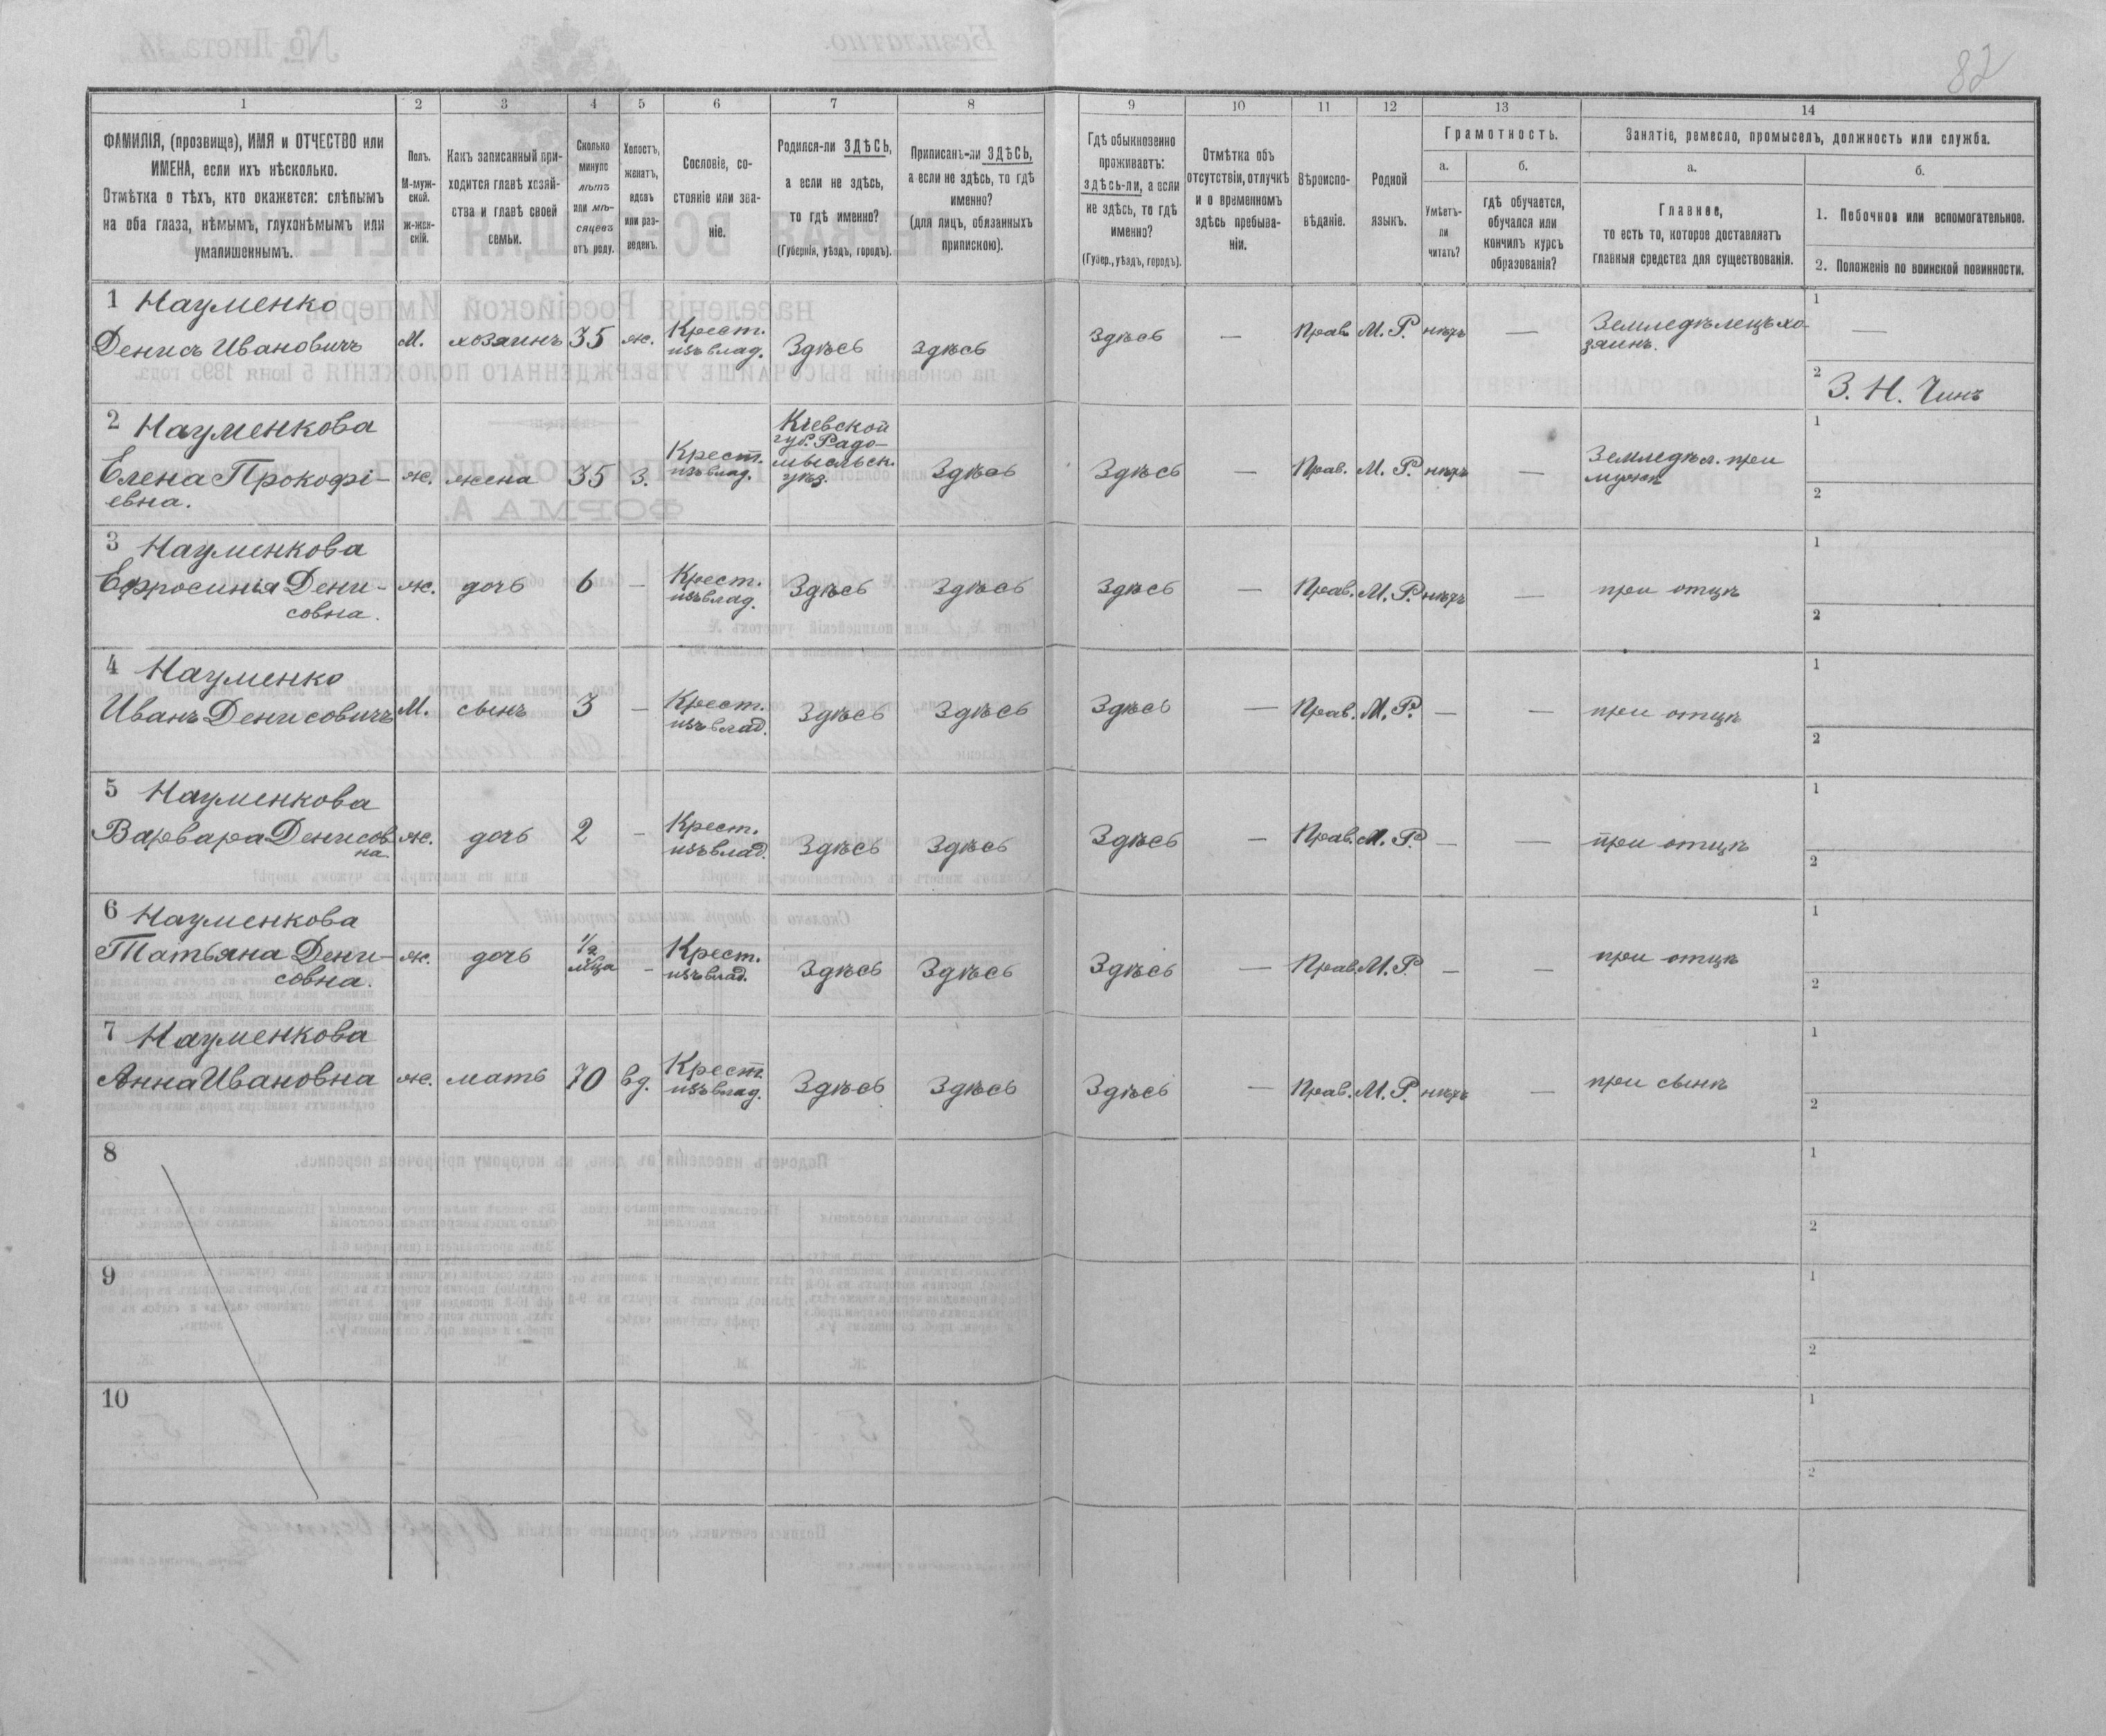 82
1 2 3 4 5 6 7 8 9 10 11 12 13 14
ФАМИЛІЯ, (прозвище), ИМЯ и ОТЧЕСТВО или
ИМЕНА, если ихъ нѣсколько.
Отмѣтка о тѣхъ, кто окажется: слѣпымъ
на оба глаза, нѣмымъ, глухонѣмымъ или
умалишеннымъ.
Полъ.
М-муж-
ской.
Ж-жен-
скій.
Какъ записанный при-
ходится главѣ хозяй-
ства и главѣ своей
семьи.
Сколько
минуло
лѣтъ
или мѣ-
сяцевъ
отъ роду.
Холостъ,
женатъ,
вдовъ
или раз-
веденъ.
Сословіе, со-
стояніе или зва-
ніе.
Родился-ли ЗДѢСЬ,
а если не здѣсь,
то гдѣ именно?
(Губернія, уѣздъ, городъ).
Приписанъ-ли ЗДѢСЬ,
а если не здѣсь, то гдѣ
именно?
(для лицъ, обязанныхъ
припискою).
Гдѣ обыкновенно
проживаетъ:
здѣсь-ли, а если
не здѣсь, то гдѣ
именно?
(Губер., уѣздъ, городъ).
Отмѣтка объ
отсутствіи, отлучкѣ
и о временномъ
здѣсь пребыва-
ніи.
Вѣроиспо-
вѣданіе.
Родной
языкъ.
Грамотность.
а.
Умѣетъ-
ли
читать?
б.
гдѣ обучается,
обучался или
кончилъ курсъ
образованія?
Занятіе, ремесло, промыселъ, должность или служба.
а.
Главное,
то есть то, которое доставляетъ
главныя средства для существованія.
б.
1. Побочное или вспомогательное.
2. Положеніе по воинской повинности.
1 Науменко
Денисъ Ивановичъ
М.
хозяинъ
35
ж.
Крест.
изъ влад.
Здѣсь
здѣсь
здѣсь
—
Прав.
М. Р.
нѣтъ
—
Земледѣлецъ хо-
зяинъ.
1 —
2 З. Н. Чинъ
2 Науменкова
Елена Прокофі-
евна.
ж.
жена
35
З.
Крест.
изъ влад.
Кіевской
губ. Радо-
мысльск.
уѣз.
Здѣсь
Здѣсь
—
Прав.
М. Р.
нѣтъ
—
Земледѣл. при
мужѣ
1
2
3 Науменкова
Ефросинія Дени-
совна.
ж.
дочь
6
—
Крест.
изъ влад.
Здѣсь
Здѣсь
Здѣсь
—
Прав.
М. Р.
нѣтъ
—
при отцѣ
1
2
4 Науменко
Иванъ Денисовичъ
М.
сынъ
3
—
Крест.
изъ влад.
Здѣсь
Здѣсь
Здѣсь
—
Прав.
М. Р.
—
—
при отцѣ
1
2
5 Науменкова
Варвара Денисов
на.
ж.
дочь
2
—
Крест.
изъ влад.
Здѣсь
Здѣсь
Здѣсь
—
Прав.
М. Р.
—
—
при отцѣ
1
2
6 Науменкова
Татьяна Дени-
совна.
ж.
дочь
1/2
мѣца
—
Крест.
изъ влад.
Здѣсь
Здѣсь
Здѣсь
—
Прав.
М. Р.
—
—
при отцѣ
1
2
7 Науменкова
Анна Ивановна
ж.
мать
70
вд.
Крест.
изъ влад.
Здѣсь
Здѣсь
Здѣсь
—
Прав.
М. Р.
нѣтъ
—
при сынѣ
1
2
8
1
2
9
1
2
10
1
2